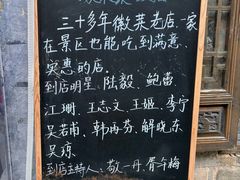 三十多年徽菜老店.一家
在景区也能吃到满意、
实惠的店.
到店明星、陆毅、鲍蕾
江珊、王志文、王姬、李宁
吴若甫、韩再芬、解晓东
吴琼
到店主持人:敬一丹、胥午梅